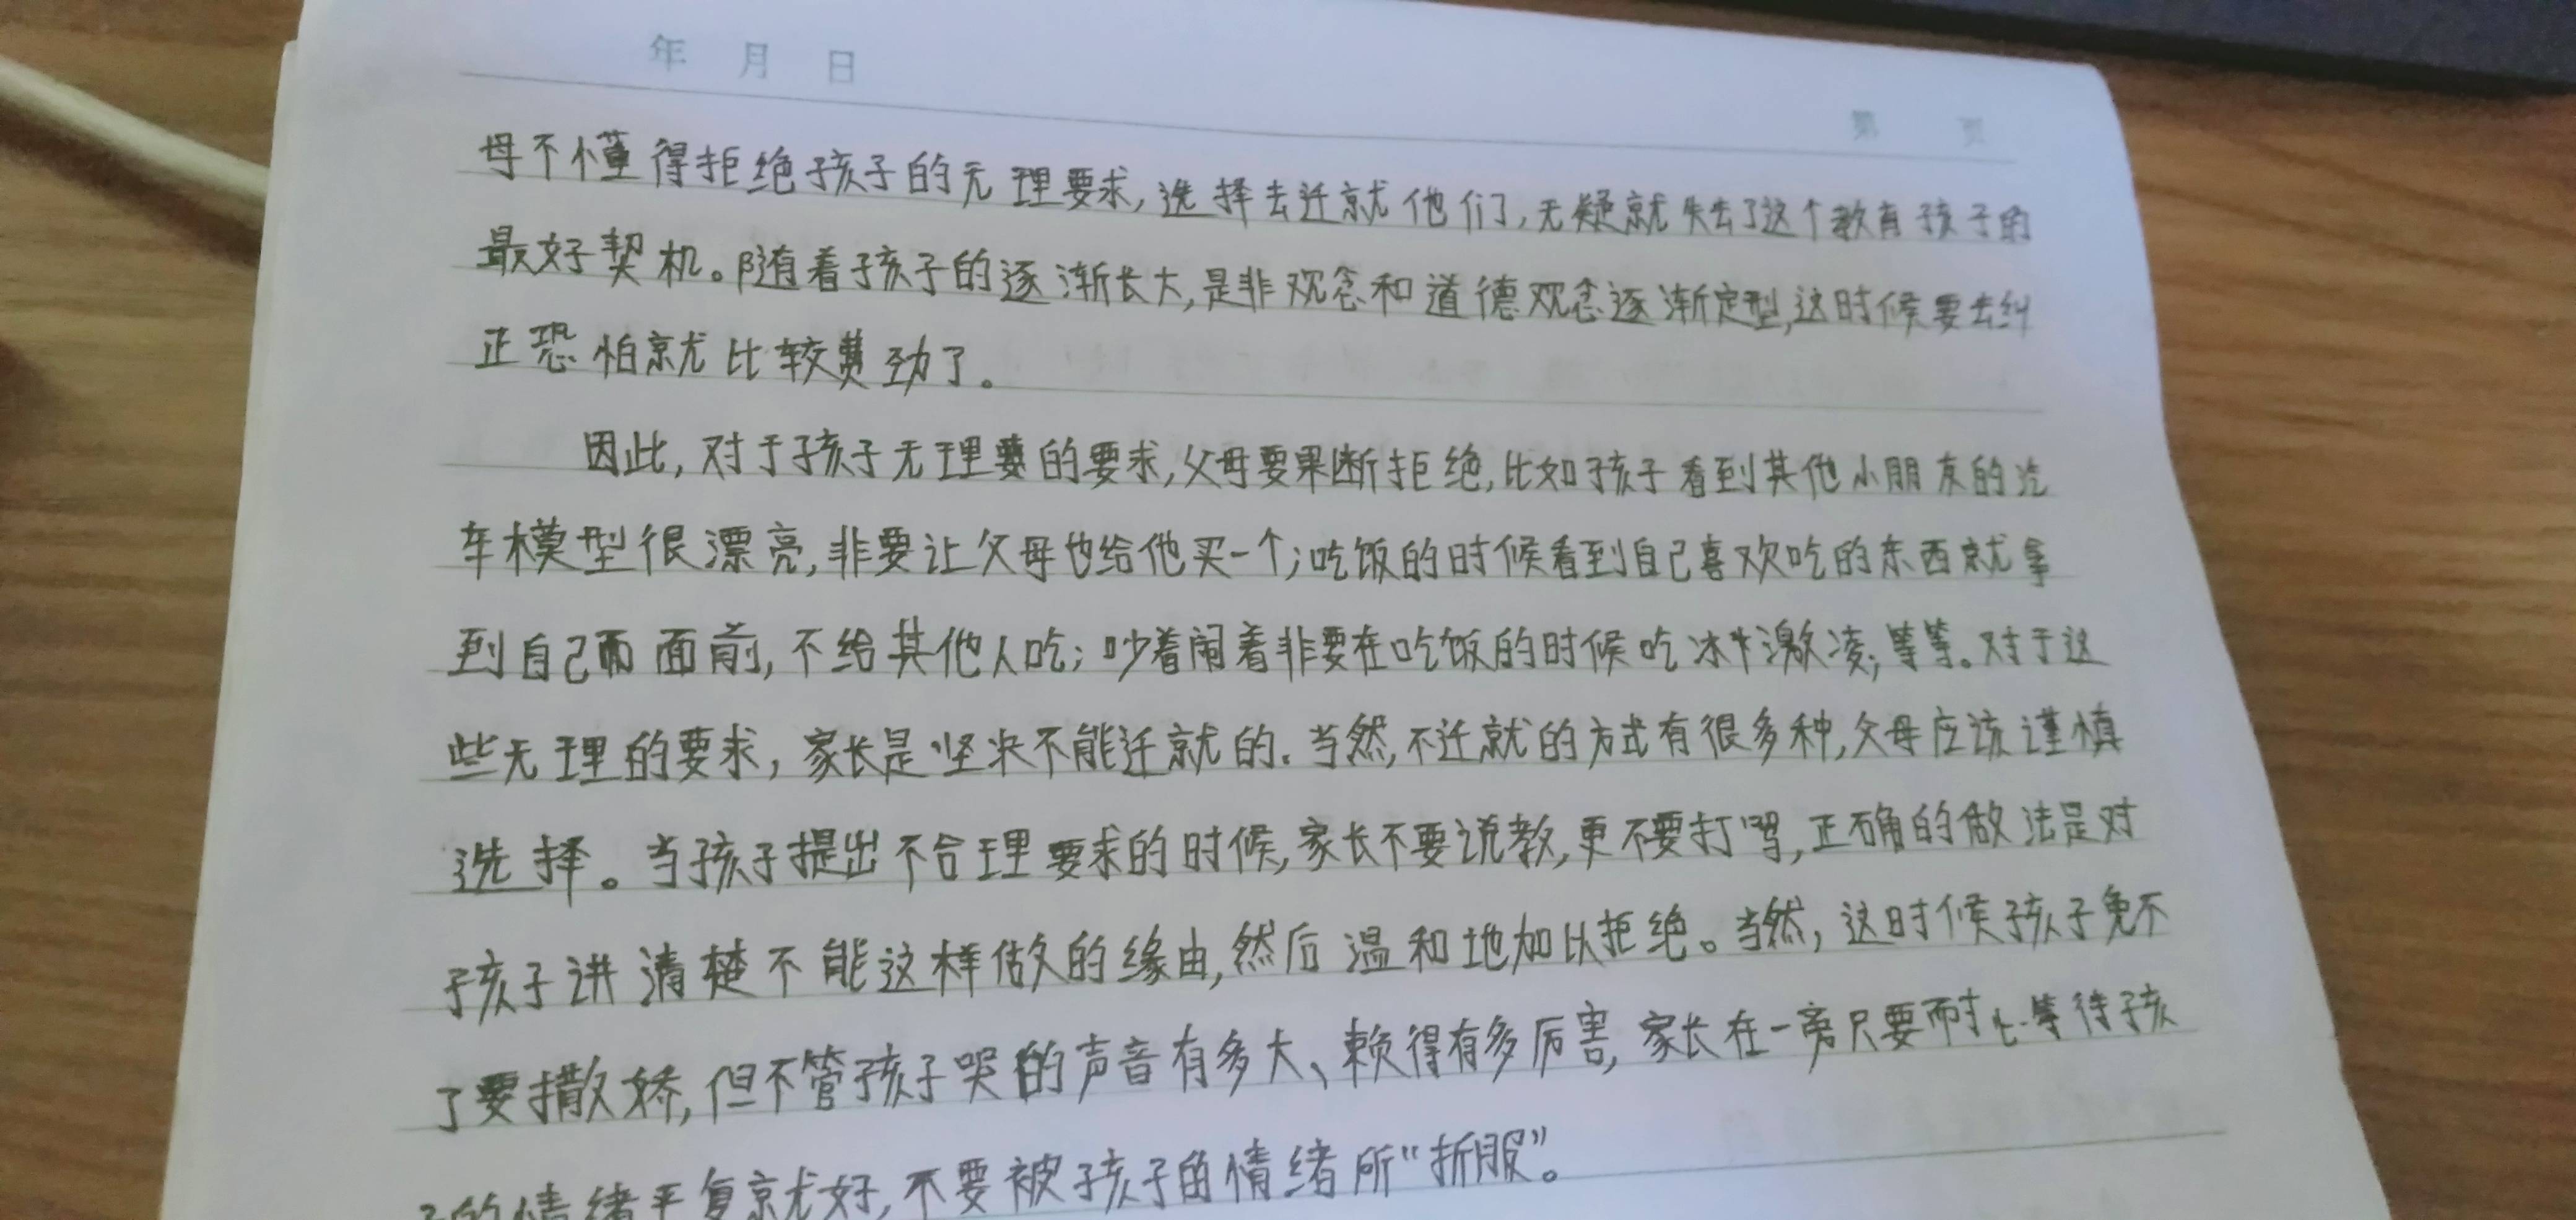 年 月 日
第 页
母不懂得拒绝孩子的无理要求,选择去迁就他们了,无疑就失去了这个教育孩子的
最好契机。随着孩子的逐渐长大,是非观念和道德观念逐渐定型,这时候要去纠
正恐怕就比较费劲了。
因此,对于孩子无理的要求,父母要果断拒绝,比如孩子看到其他小朋友的汽
车模型很漂亮,非要让父母也给他买一个;吃饭的时候看到自己喜欢吃的东西就拿
到自己面前,不给其他人吃;吵着闹着非要在吃饭的时候吃冰激凌;等等。对于这
些无理的要求,家长是坚决不能迁就的。当然,不迁就的方式有很多种,父母应该谨慎
选择。当孩子提出不合理要求的时候,家长不要说教,更不要打骂,正确的做法是对
孩子讲清楚不能这样做的缘由,然后温和地加以拒绝。当然,这时候孩子免不
了要撒娇,但不管孩子哭的声音有多大、赖得有多厉害,家长在一旁只要耐心等待孩
子的情绪平复就好,不要被孩子的情绪所“折服”。